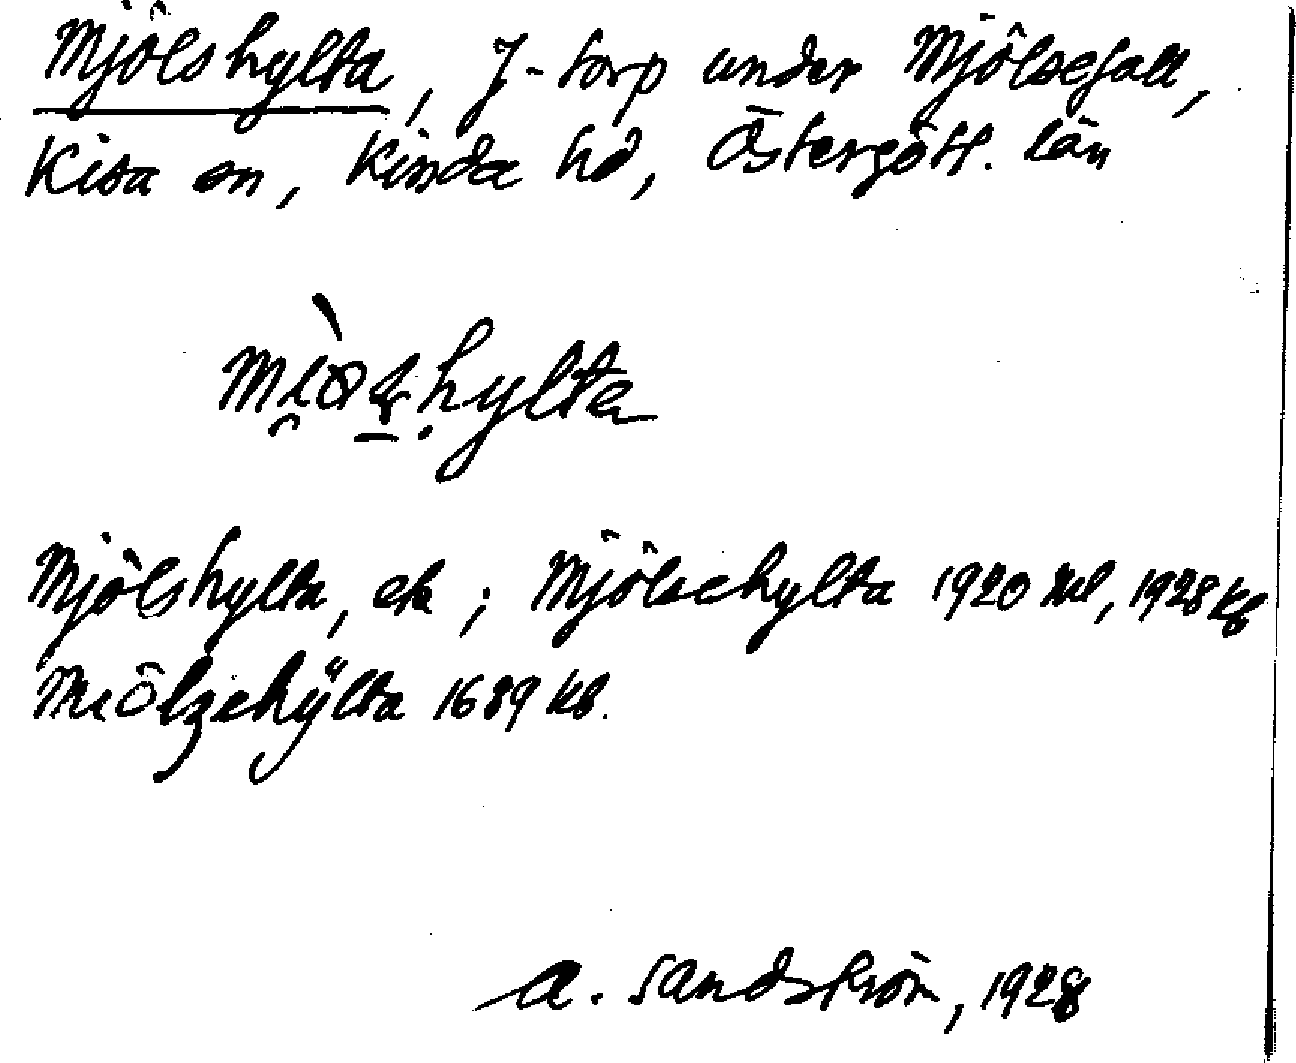 Mjölshylta, J-torp under Mjölsefall,
Kisa sn, Kinda hd, Östergötl. län
hylta
Mjölshylta, ek; Mjölsehylta 1920 ml, 1928 kb
Miölzehÿlta 1689 kb.
A. Sandström, 1928